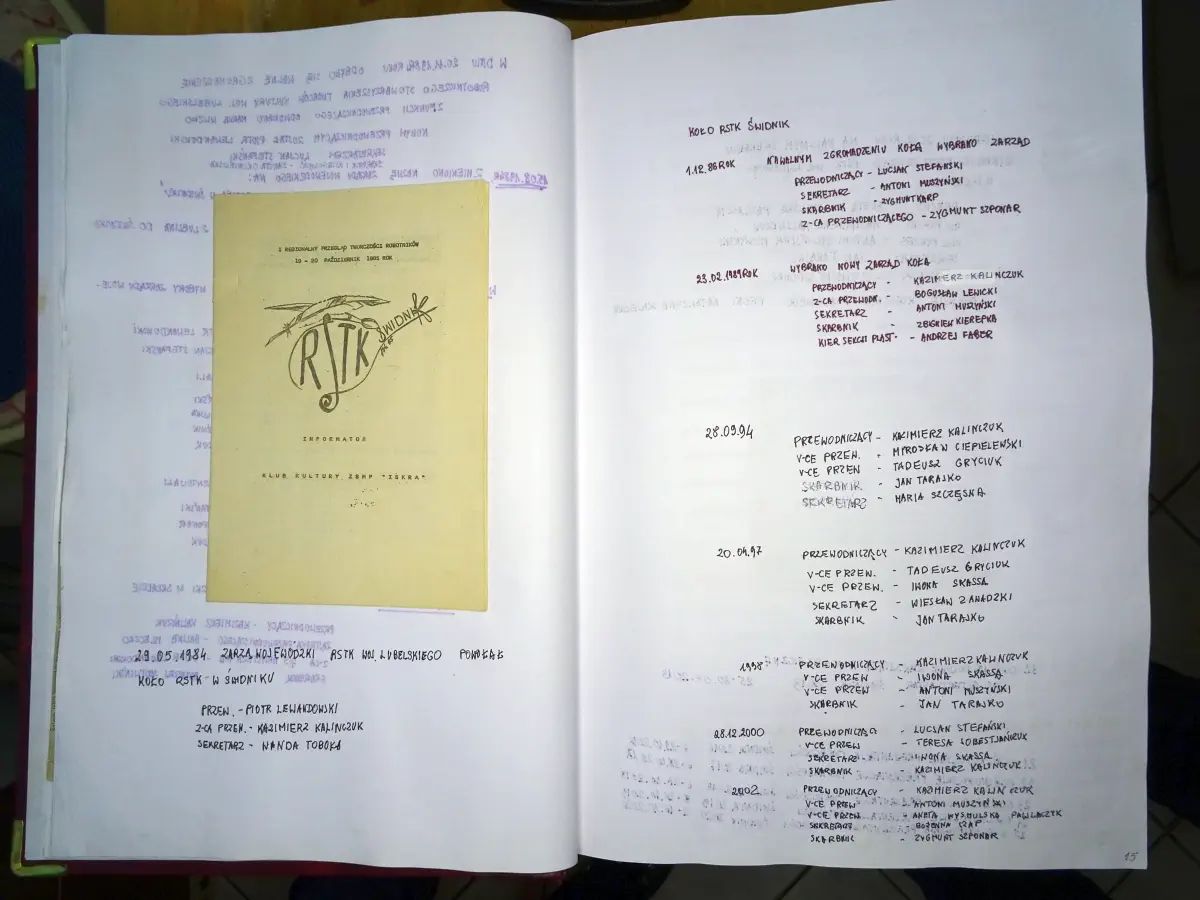 I REGIONALNY PRZEGLĄD TWÓRCZOŚCI ROBOTNIKÓW
19 - 20 PAŹDZIERNIK 1985 ROK
RSTK
ŚWIDNIK
INFORMATOR
KLUB KULTURY ZBMP "ISKRA"
29.05.1984 ZARZĄ WOJEWÓDZKI RSTK WOJ. LUBELSKIEGO POWOŁAŁ
KOŁO RSTK W ŚWIDNIKU
PRZEW. - PIOTR LEWANDOWSKI
Z-CA PRZEW. - KAZIMIERZ KALINCZUK
SEKRETARZ - WANDA TOBOŁA
KOŁO RSTK ŚWIDNIK
1.12.86 ROK NAWALNYM ZGROMADZENIU KOŁA WYBRANO ZARZĄD
PRZEWODNICZĄCY - LUCJAN STEFAŃSKI
SEKRETARZ - ANTONI MUSZYŃSKI
SKARBNIK - ZYGMUNT KARP
Z-CA PRZEWODNICZĄCEGO - ZYGMUNT SZPONAR
23.02.1989 ROK WYBRANO NOWY ZARZĄD KOŁA
PRZEWODNICZĄCY - KAZIMIERZ KALINCZUK
Z-CA PRZEWODN. - BOGUSŁAW LENICKI
SEKRETARZ - ANTONI MUSZYŃSKI
SKARBNIK - ZBIGNIEW KIEREPKA
KIER SEKCJI PLAST. - ANDRZEJ FABER
28.09.94 PRZEWODNICZĄCY - KAZIMIERZ KALINCZUK
V-CE PRZEW. - MIROSŁAW CIEPIELEWSKI
V-CE PRZEW - TADEUSZ GRYCIUK
SKARBNIK - JAN TARAJKO
SEKRETARZ - MARIA SZCZĘSNA
20.04.97 PRZEWODNICZĄCY - KAZIMIERZ KALINCZUK
V-CE PRZEW. - TADEUSZ GRYCIUK
V-CE PRZEW. - IWONA SKASSA
SEKRETARZ - WIESŁAW ZAWADZKI
SKARBNIK - JAN TARAJKO
1998 PRZEWODNICZĄCY - KAZIMIERZ KALINCZUK
V-CE PRZEW - IWONA SKASSA
V-CE PRZEW - ANTONI MUSZYŃSKI
SKARBNIK - JAN TARAJKO
28.12.2000 PRZEWODNICZĄCY - LUCJAN STEFAŃSKI
V-CE PRZEW - TERESA
SEKRETARZ - IWONA SKASSA
SKARBNIK - KAZIMIERZ KALINCZUK
2002 PRZEWODNICZĄCY - KAZIMIERZ KALINCZUK
V-CE PRZEW - ANTONI MUSZYŃSKI
V-CE PRZEW - ANETA WYSMULSKA PAWLACZYK
SEKRETARZ - BOŻENNA
SKARBNIK - ZYGMUNT SZPONAR
15